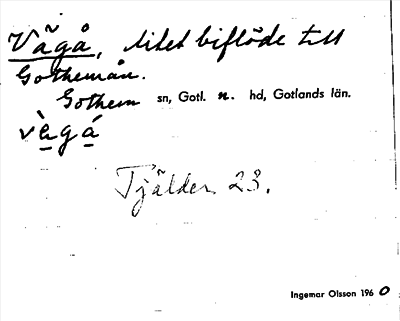 Vägå, litet biflöde till
Gothemån.
Gothem sn, Gotl. n. hd, Gotlands län.
vègá
Tjälder 23.
Ingemar Olsson 1960